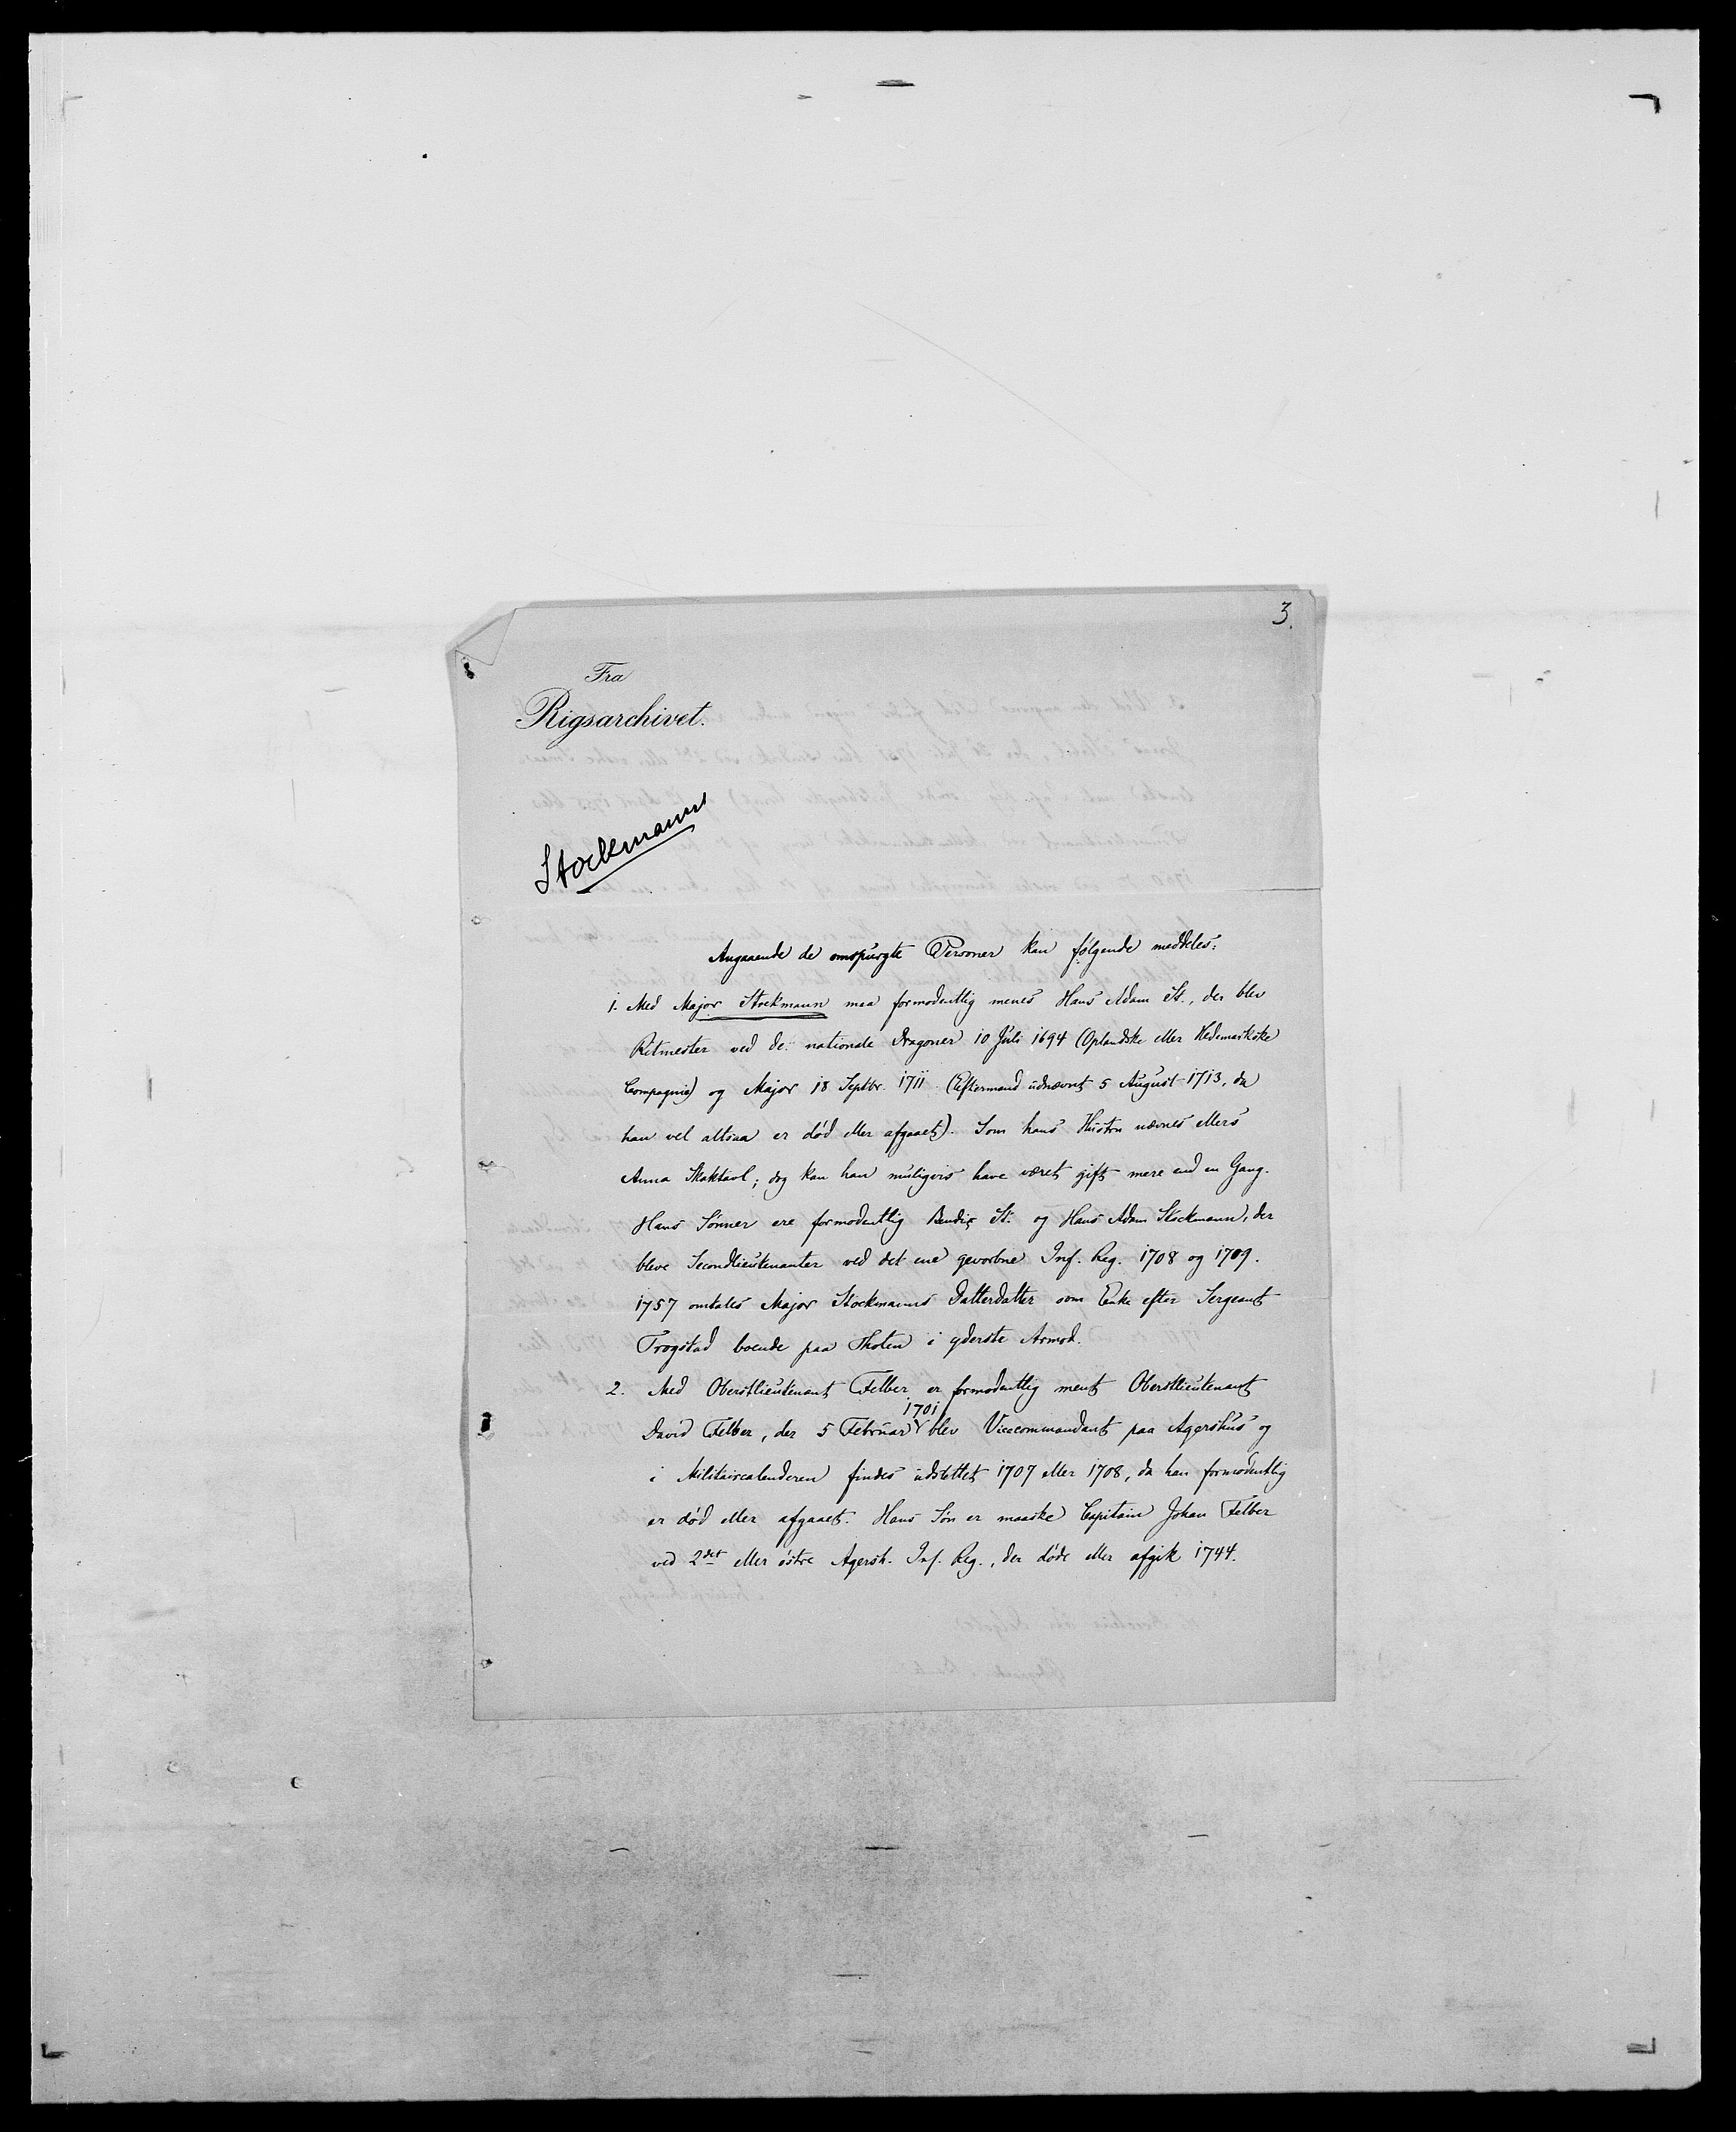 3.
Fra
Rigsarchivet.
Stockmann
Angaaende de omspurgte Personer kan følgende meddeles:
1. Med Major Stockmann maa formodentlig menes Hans Adam St., der blev
Ritmester ved de nationale Dragoner 10 Juli 1694 (Oplandske eller Hedemarkske
Compagnie) og Major 18 Septbr. 1711 (Eftermand udnævnt 5 August 1713, da
han vel altsaa er død eller afgaaet). Som hans Hustru nævnes ellers
Anna Skaktavl; dog kan han muligvis have været gift mere end en Gang.
Hans Sønner ere formodentlig Bendix St. og Hans Adam Stockmann, der
bleve Secondlieutenanter ved det ene gevorbne Inf. Reg. 1708 og 1709.
1757 omtales Major Stockmanns Datterdatter som Enke efter Sergeant
Trogstad boende paa Thoten i yderste Armod.
2. Med Oberstlieutenant Felber er formodentlig ment Oberstlieutenant
David Felber, der 5 Februar 1701 blev Vicecommandant paa Agershus og
i Militaircalenderen findes udslettet 1707 eller 1708, da han formodentlig
er død eller afgaaet. Hans Søn er maaske Capitain Johan Felber
ved 2det eller østre Agersh. Inf. Reg., der døde eller afgik 1744.